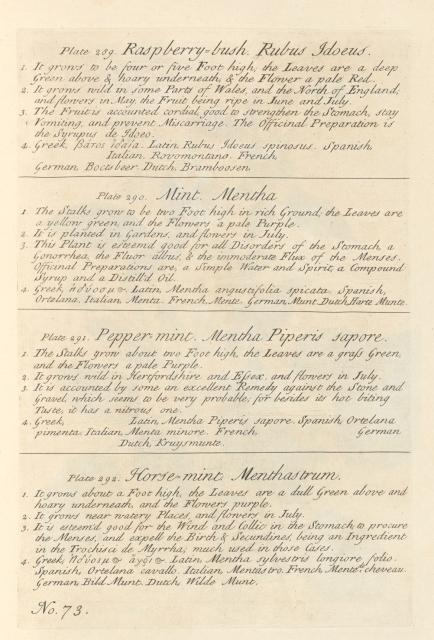 Plate 289. Raspberry=bush. Rubus Idoeus.
1. It grows to be four or five Foot high, the Leaves are a deep
Green above & hoary underneath, & the Flower a pale Red.
2. It grows wild in some Parts of Wales, and the North of England;
and flowers in May, the Fruit being ripe in June and July.
3. The Fruit is accounted cordial, good to strengthen the Stomach, stay
Vomiting, and prevent Miscarriage. The Officinal Preparation is
the Syrupus de Idoeo.
4. Greek, βάτος ἰδαία. Latin, Rubus Idoeus spinosus. Spanish,
Italian, Rovomontano. French,
German, Bocksbeer. Dutch, Bramboosen.
Plate 290. Mint. Mentha
1. The Stalks grow to be two Foot high in rich Ground, the Leaves are
a yellow green, and the Flowers a pale Purple.
2. It is planted in Gardens, and flowers in July.
3. This Plant is esteem'd good for all Disorders of the Stomach, a
Gonorrhea, the Fluor albus, & the immoderate Flux of the Menses.
Officinal Preparations are, a Simple Water and Spirit, a Compound
Syrup and a Distill'd Oil.
4. Greek, ἡδύοσμ⊕. Latin, Mentha angustifolia spicata. Spanish,
Ortelana. Italian, Menta. French, Mente. German, Munt. Dutch, Harte Munte.
Plate 291. Pepper=mint. Mentha Piperis sapore.
1. The Stalks grow about two Foot high, the Leaves are a grass Green,
and the Flowers a pale Purple.
2. It grows wild in Hertfordshire and Essex, and flowers in July.
3. It is accounted by some an excellent Remedy against the Stone and
Gravel, which seems to be very probable, for besides its hot biting
Taste, it has a nitrous one.
4. Greek, Latin, Mentha Piperis sapore. Spanish, Ortelana
pimenta. Italian, Menta minore. French, German
Dutch, Kruysmunte.
Plate 292. Horse=mint. Menthastrum.
1. It grows about a Foot high, the Leaves are a dull Green above and
hoary underneath, and the Flowers purple.
2. It grows near watery Places, and flowers in July.
3. It is esteem'd good for the Wind and Collic in the Stomach, to procure
the Menses, and expell the Birth & Secundines, being an Ingredient
in the Trochisci de Myrrha, much used in those Cases.
4. Greek, ἡδύοσμ⊕ ἄγρι⊕. Latin, Mentha sylvestris longiore folio.
Spanish, Ortelana cavallo. Italian, Mentastro. French, cheveau.
German, Bild Munt. Dutch, Wilde Munt.
No. 73.